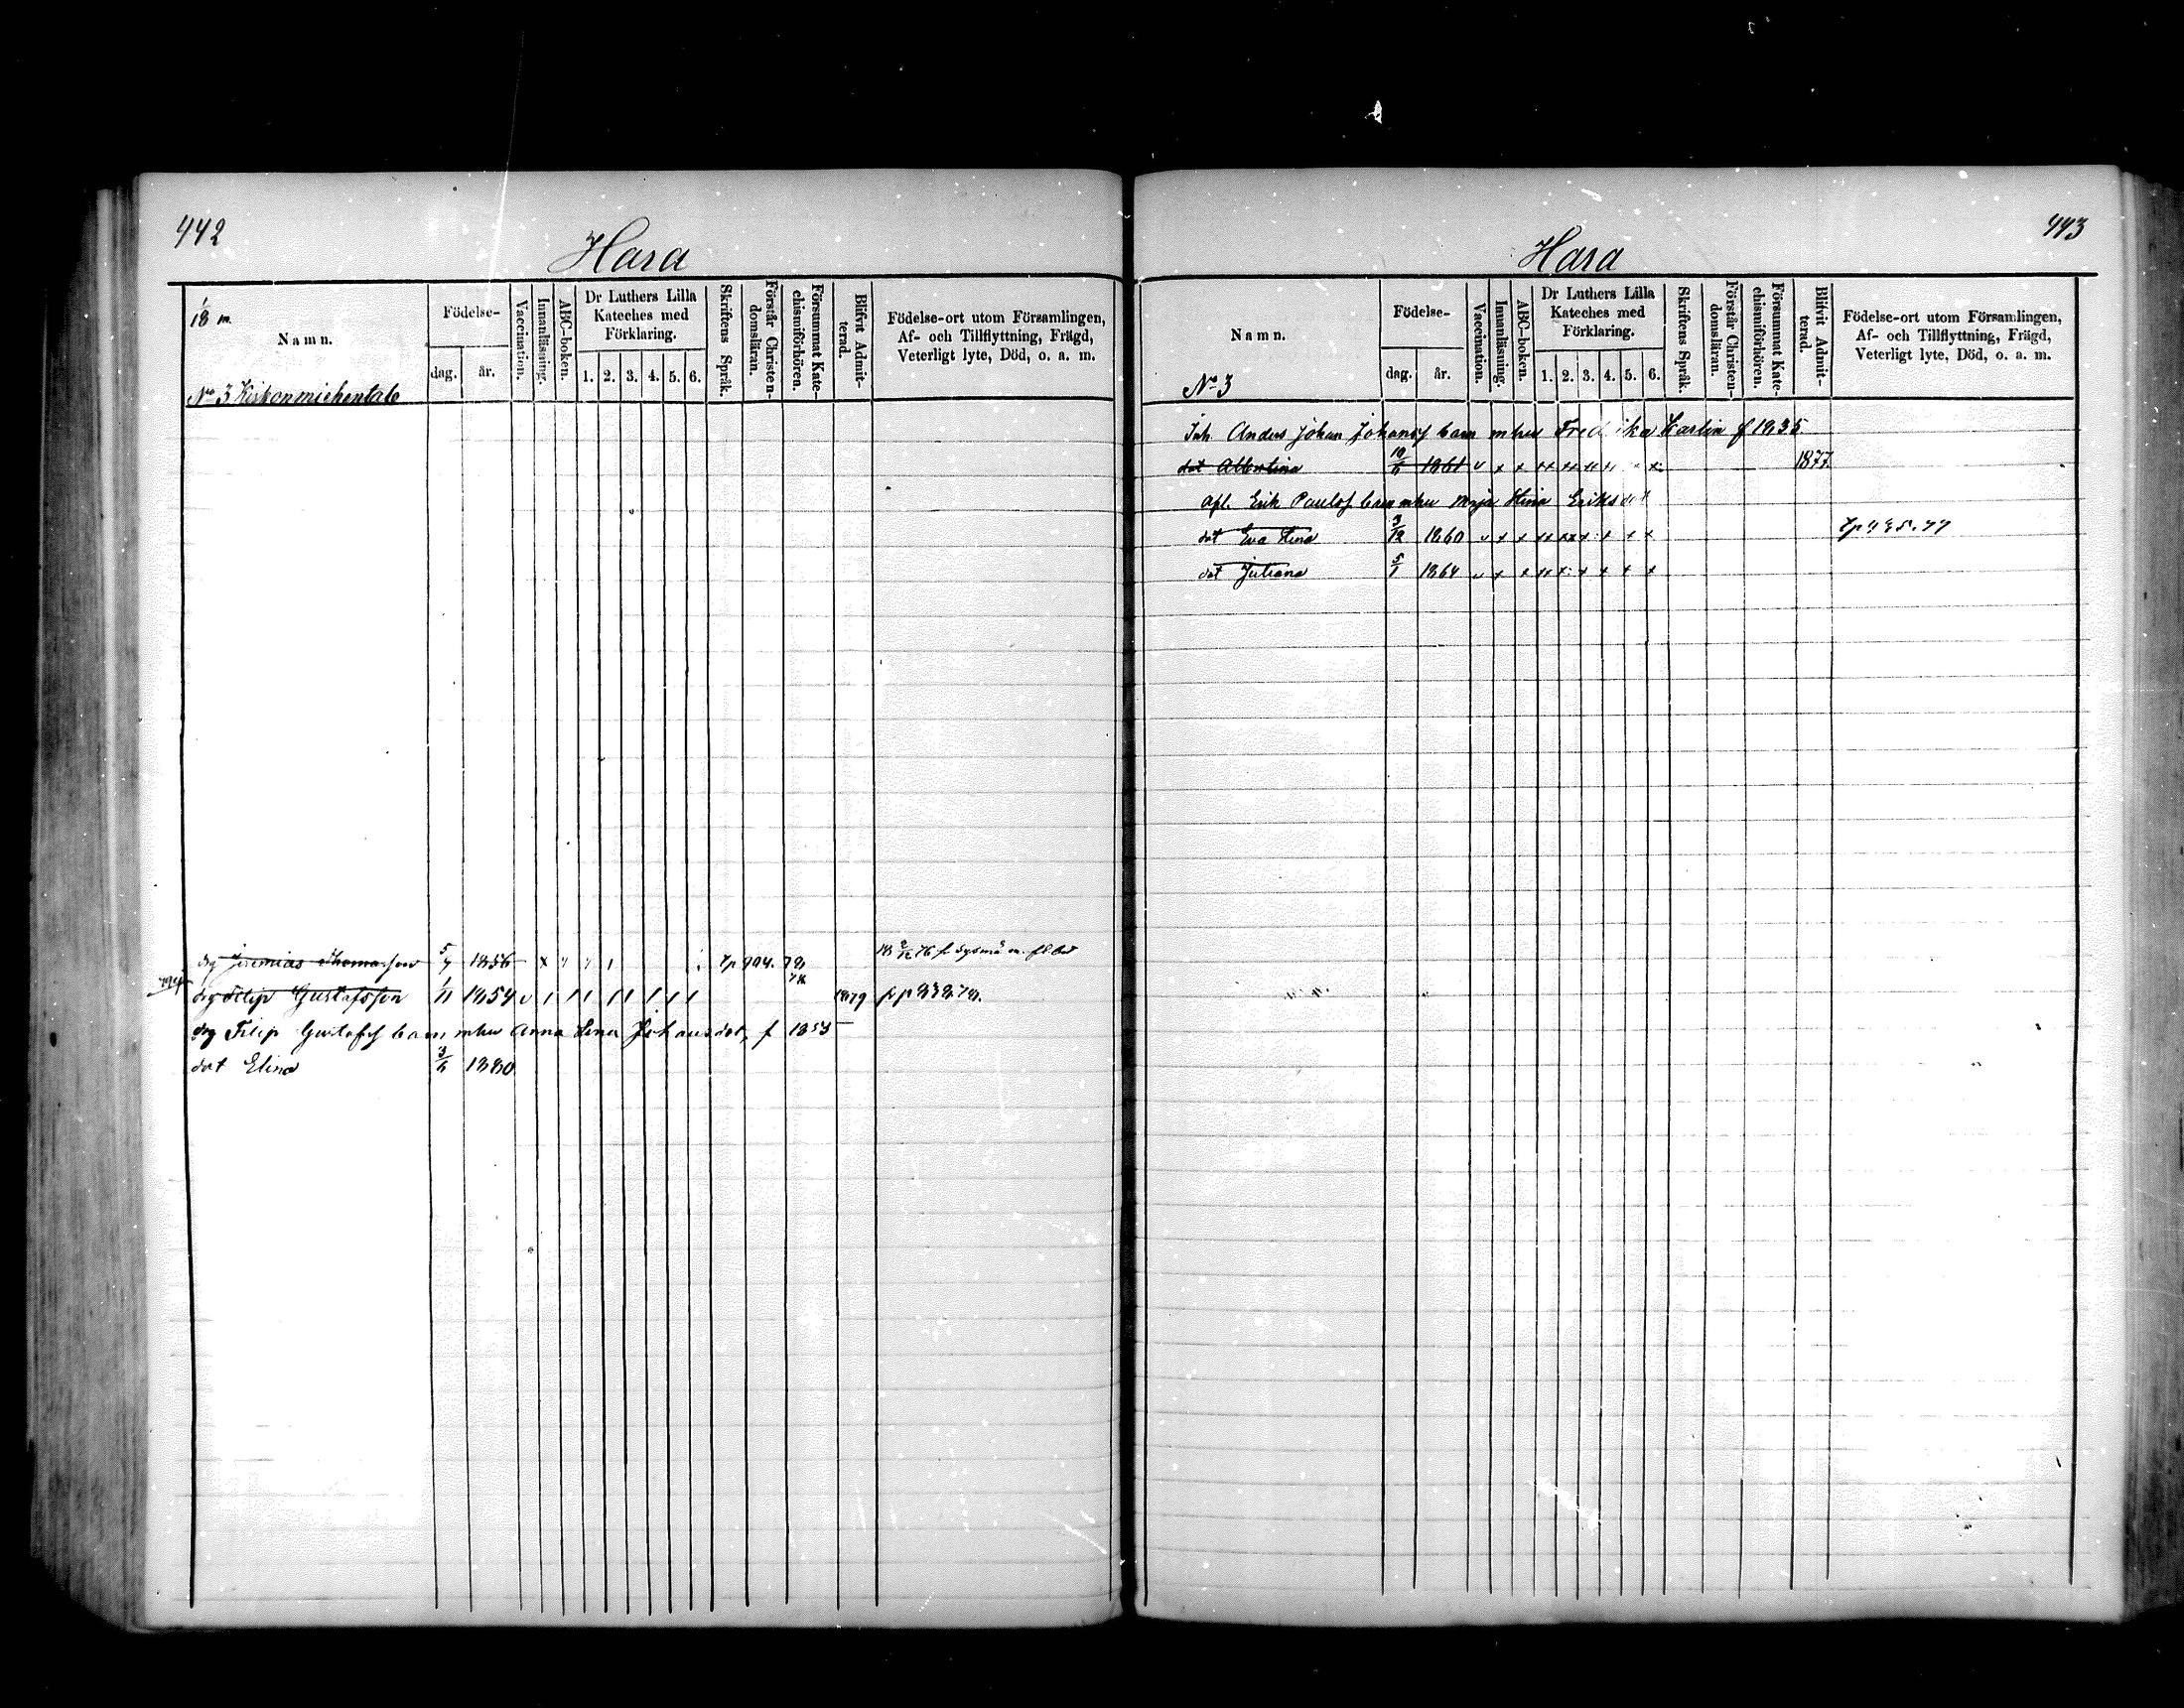 442
Hara
18 m.
Namn.
Födelse-
dag.
år.
Vaccination.
Innanläsning.
ABC-boken.
Dr Luthers Lilla
Kateches med
Förklaring.
1. 2. 3. 4. 5. 6.
Skriftens Språk.
Förstår Christen-
domsläran.
Försummat Kate-
chismiförhören.
Blifvit Admit-
terad.
Födelse-ort utom Församlingen,
Af- och Tillflyttning, Frägd,
Veterligt lyte, Död, o. a. m.
No 3
drg Jeremias Thomasson 5/7 1856 x
drg Filip Gustafsson 1/11 1854 v 1879
drg Filip Gustafss barn m hu Anna Lena Johansdot, f 1853
dot Elina 1880
443
Hara
Namn.
Födelse-
dag.
år.
Vaccination.
Innanläsning.
ABC-boken.
Dr Luthers Lilla
Kateches med
Förklaring.
1. 2. 3. 4. 5. 6.
Skriftens Språk.
Förstår Christen-
domsläran.
Försummat Kate-
chismiförhören.
Blifvit Admit-
terad.
Födelse-ort utom Församlingen,
Af- och Tillflyttning, Frägd,
Veterligt lyte, Död, o. a. m.
No 3
Inh. Anders Johan Johanss barn m hu Fredrika Karlin f 1835
dot Albertina 1861 v x x 1877
Erik Paulss barn m hu Maja Stina Eriksdot
dot Eva Lena 3/12 1860 v x x
dot Juliana 5/1 1864 v x x